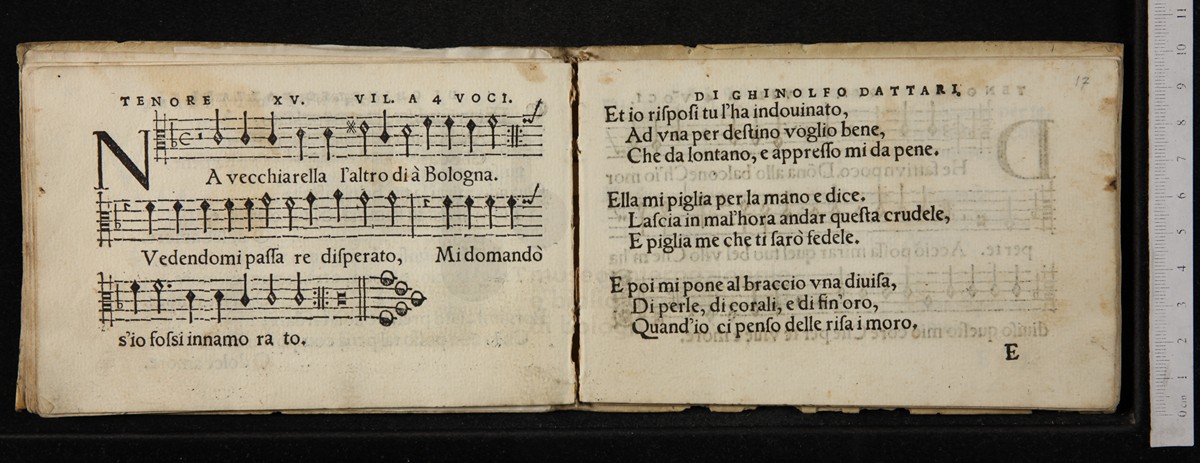 TENORE XV. VIL. A 4 VOCI.
NA vecchiarella l'altro di à Bologna.
Vedendomi passa re disperato, Mi domandò
s'io fossi innamo ra to.
17
DI GHINOLFO DATTARI.
Et io risposi tu l'ha indouinato,
Ad vna per destino voglio bene,
Che da lontano, e appresso mi da pene.
Ella mi piglia per la mano e dice.
Lascia in mal'hora andar questa crudele,
E piglia me che ti sarò fedele.
E poi mi pone al braccio vna diuisa,
Di perle, di corali, e di fin'oro,
Quand'io ci penso delle risa i moro.
E
0 cm 1 2 3 4 5 6 7 8 9 10 11